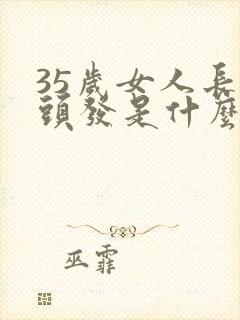 35歲女人長
頭發是什麽
巫霏